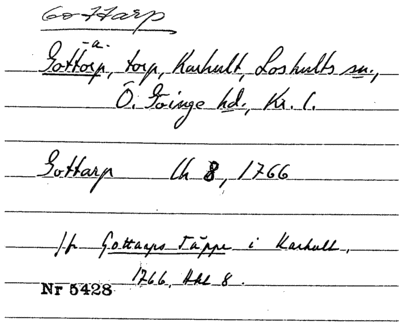 Gottarp
-a-
Gottorp, torp, Karhult, Loshults sn.,
Ö. Göinge hd., Kr. l.
Gottarp Ch 8, 1766
jfr Gottarps Täppe i Karhult,
1766, Hhl 8.
Nr 5428